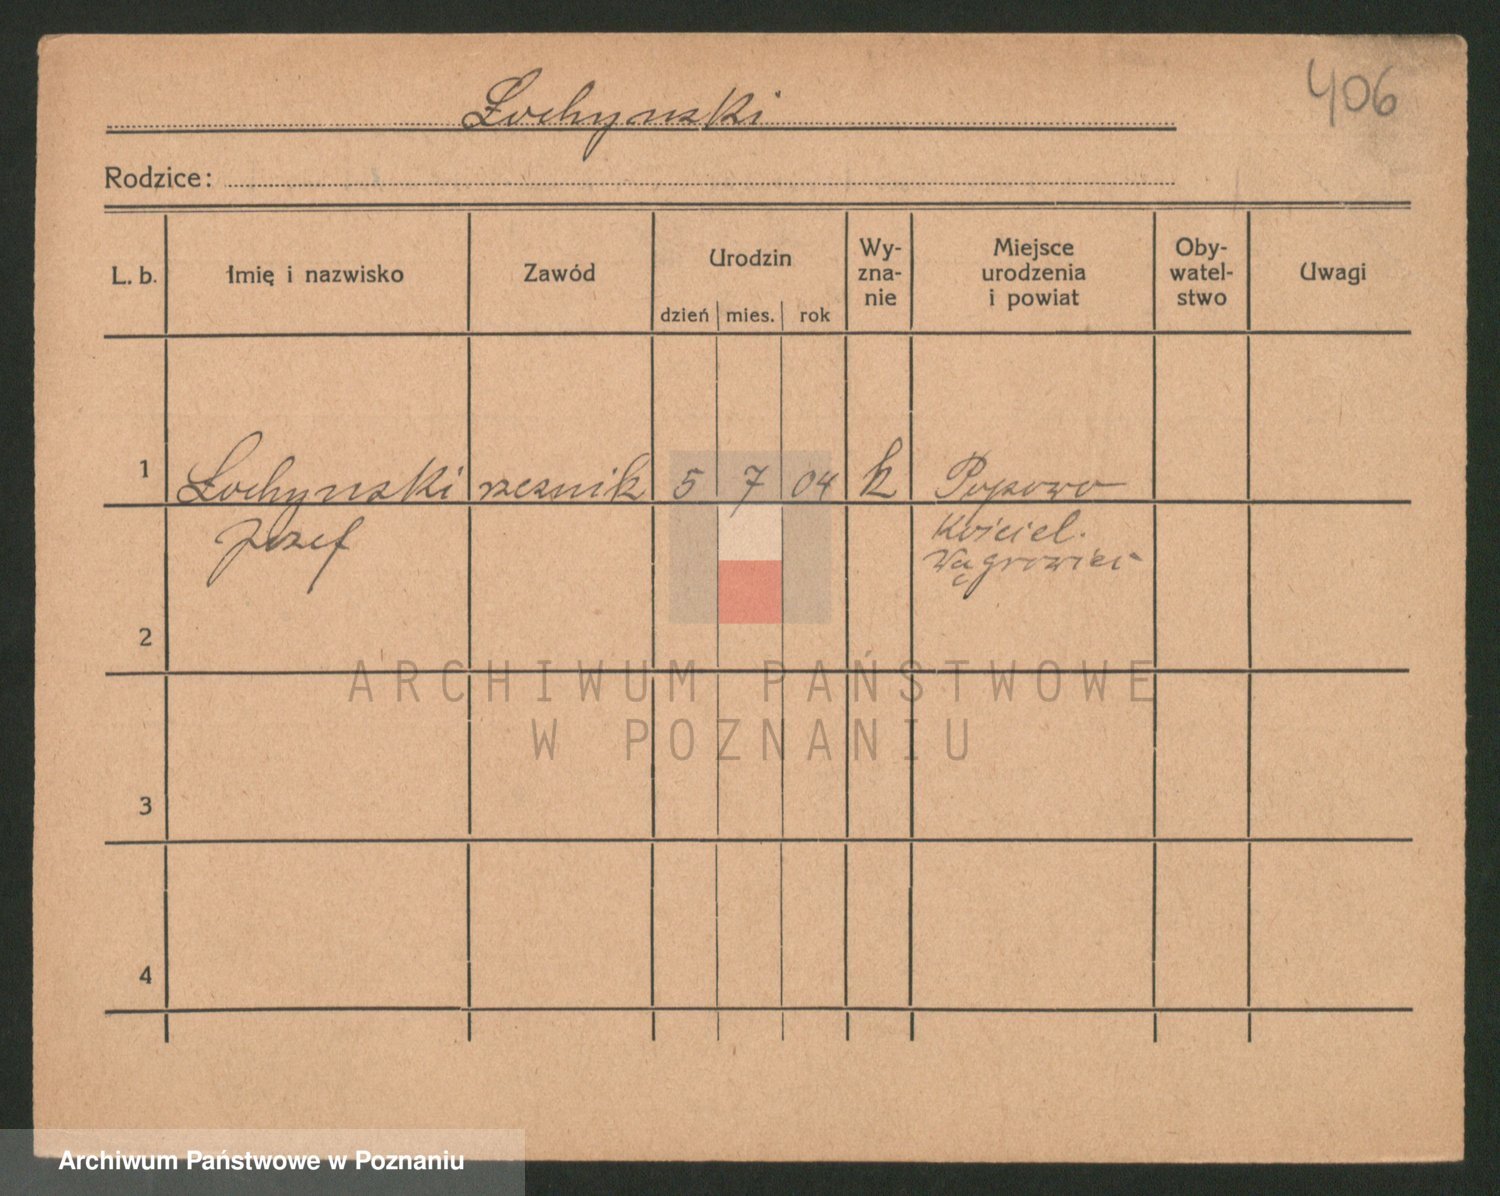 Łochynski
406
Rodzice:
L. b. Imię i nazwisko Zawód Urodzin dzień mies. rok Wy-zna-nie Miejsce urodzenia i powiat Oby-watel-stwo Uwagi
1 Łochynski rzeznik 5 7 04 k Popowo
Jozef Kościel.
Wągrowiec
2
ARCHIWUM PAŃSTWOWE
W POZNANIU
3
4
Archiwum Państwowe w Poznaniu